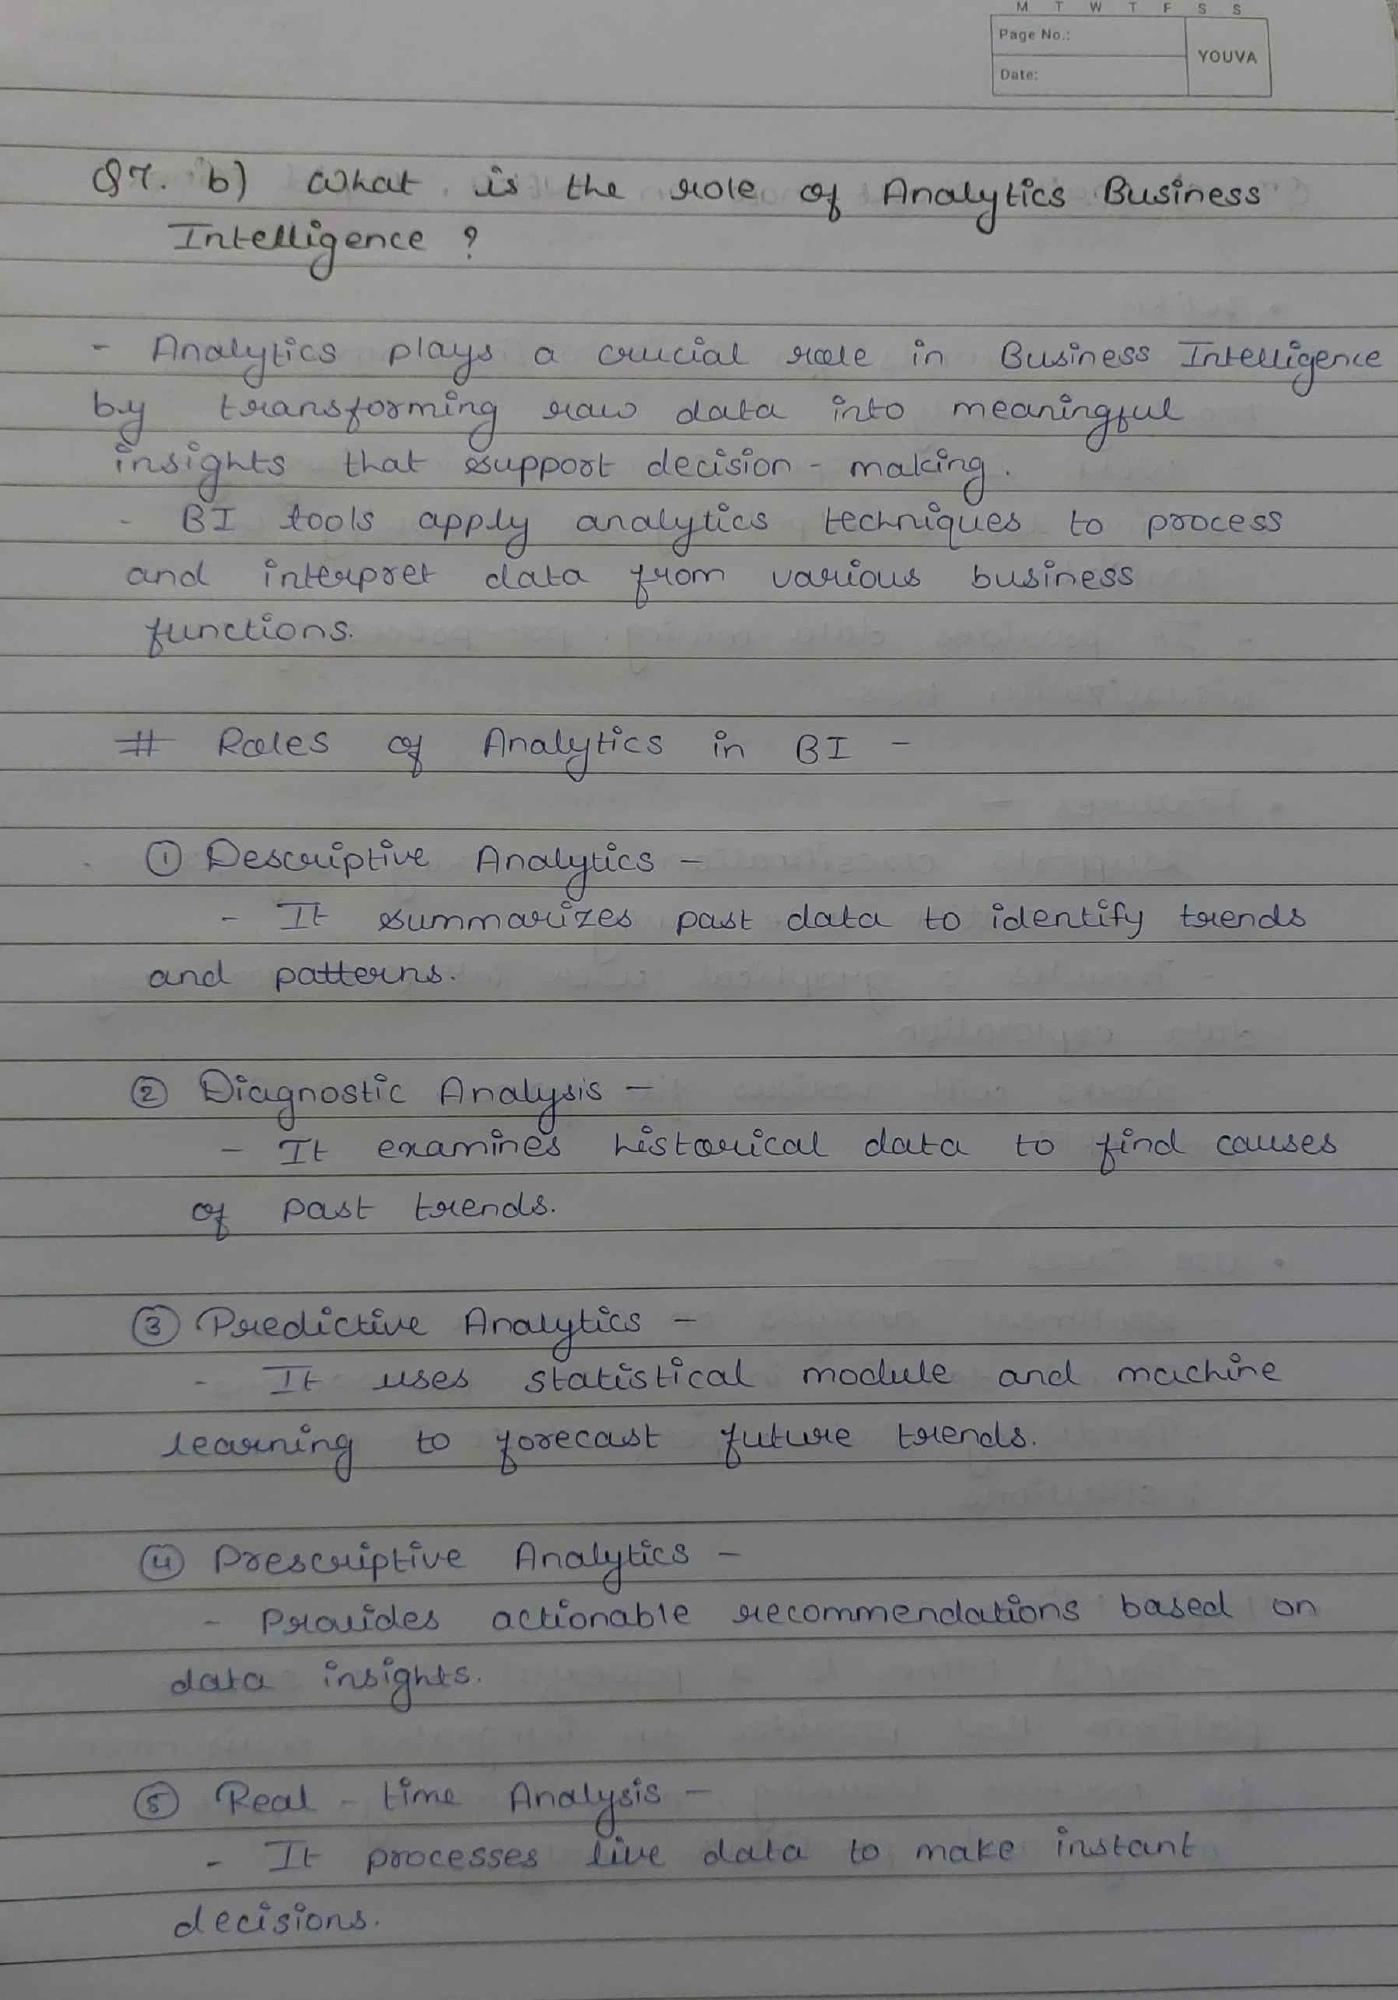 M T W T F S S
Page No.:
YOUVA
Date:
Q7. b) What is the role of Analytics Business
Intelligence ?
- Analytics plays a crucial role in Business Intelligence
by transforming raw data into meaningful
insights that support decision - making.
- BI tools apply analytics techniques to process
and interpret data from various business
functions.
# Roles of Analytics in BI -
① Descriptive Analytics -
- It summarizes past data to identify trends
and patterns.
② Diagnostic Analysis -
- It examines historical data to find causes
of past trends.
③ Predictive Analytics -
- It uses statistical module and machine
learning to forecast future trends.
④ Prescriptive Analytics -
- Provides actionable recommendations based on
data insights.
⑤ Real - time Analysis -
- It processes live data to make instant
decisions.